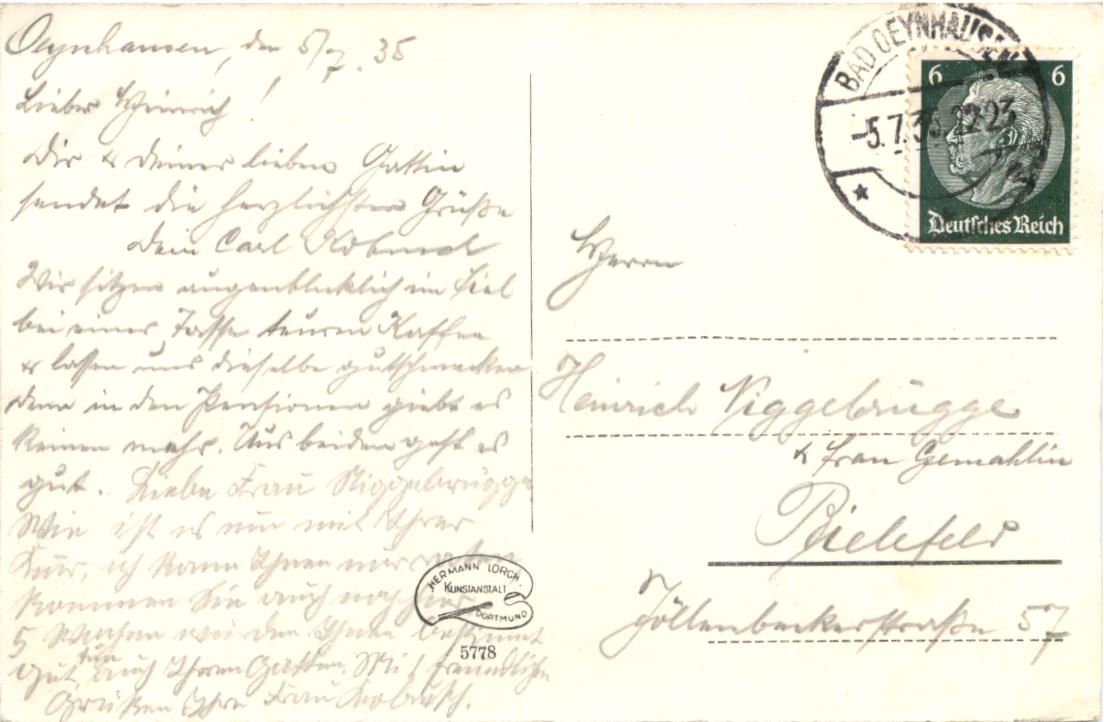 Oeynhausen, den 5/7. 35
Lieber Heinrich!
Dir & Deiner lieben Gattin
sendet die herzlichsten Grüße
Dein Carl
Wir sitzen augenblicklich im Siel
bei einer Tasse teuren Kaffee
& lassen uns dieselbe gutschmecken
denn in den Pensionen giebt es
keinen mehr. Uns beiden geht es
gut. Liebe Frau Niggebrügge
Wie ist es nun mit Ihrer
Kur, ich kann Ihnen nur raten
kommen Sie auch noch her
5 Wochen wird den Ihnen bestimmt
gut tun auch Ihren Gatten. Mit freundlichen
Grüßen Ihre Frau
HERMANN LORCH
KUNSTANSTALT
DORTMUND
5778
BAD OEYNHAUSEN
-5.7.35.22-23
6 6
Deutsches Reich
Herrn
Heinrich Niggebrügge
& Frau Gemahlin
Bielefeld
Jöllenbeckerstraße 57